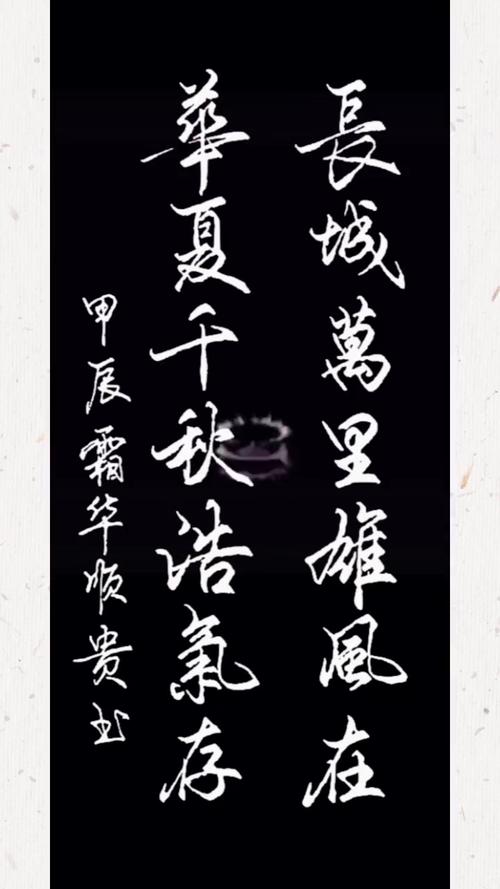 長城萬里雄風在
華夏千秋浩氣存
甲辰霜华顺贵书